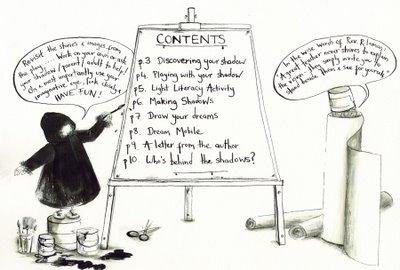 Revisit the stories & images from
the play.... Work on your own or ask
your shadow / parent / adult to help!
Or most importantly use your
imaginative eye, look closely &
HAVE FUN!
CONTENTS
p.3 Discovering your shadow
p4. Playing with your shadow
p5. Light Literacy Activity
p6. Making Shadows
p7. Draw your dreams
p8. Dream Mobile
p9. A letter from the author
p10. Who's behind the shadows?
"In the wise words of
A great teacher never strives to explain
the vision - they simply invite you to
stand beside them & see for yourself"